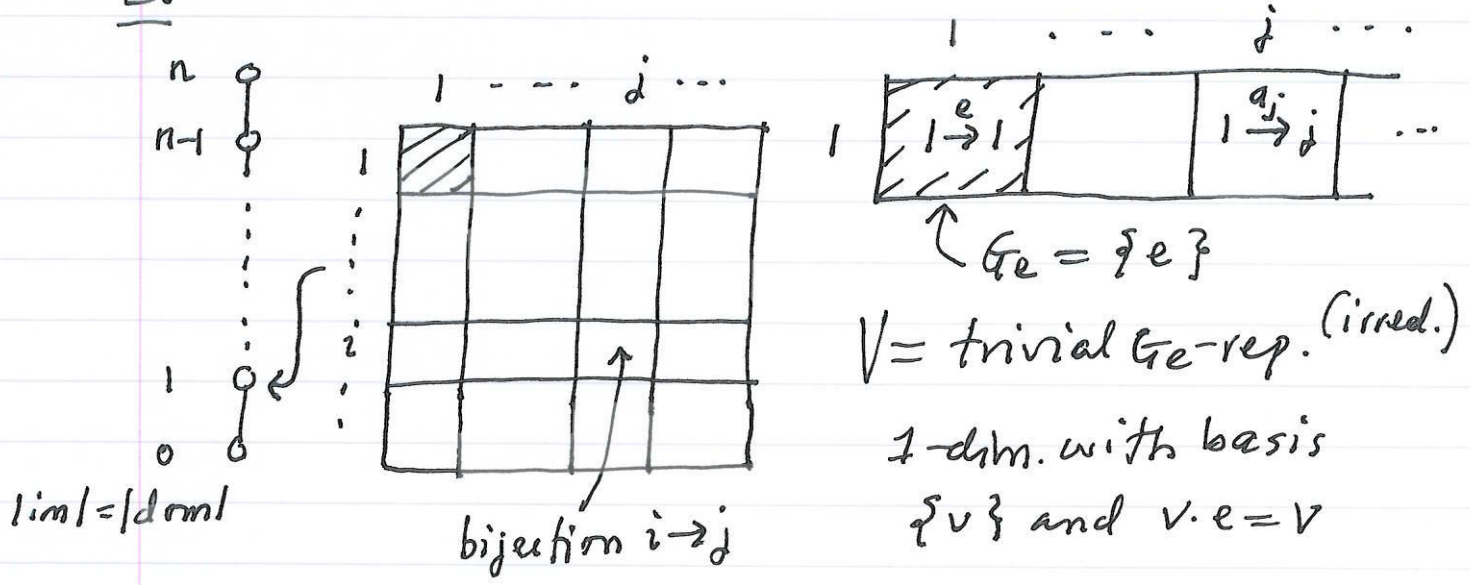 n
n-1
1
0
|im|=|dom|
1 - - - - j ...
1
i
bijection i→j
1 . ... j ....
1
1 →e 1
1 →a_j j
...
G_e = {e}
V = trivial G_e-rep. (irred.)
1-dim. with basis
{v} and v·e=v